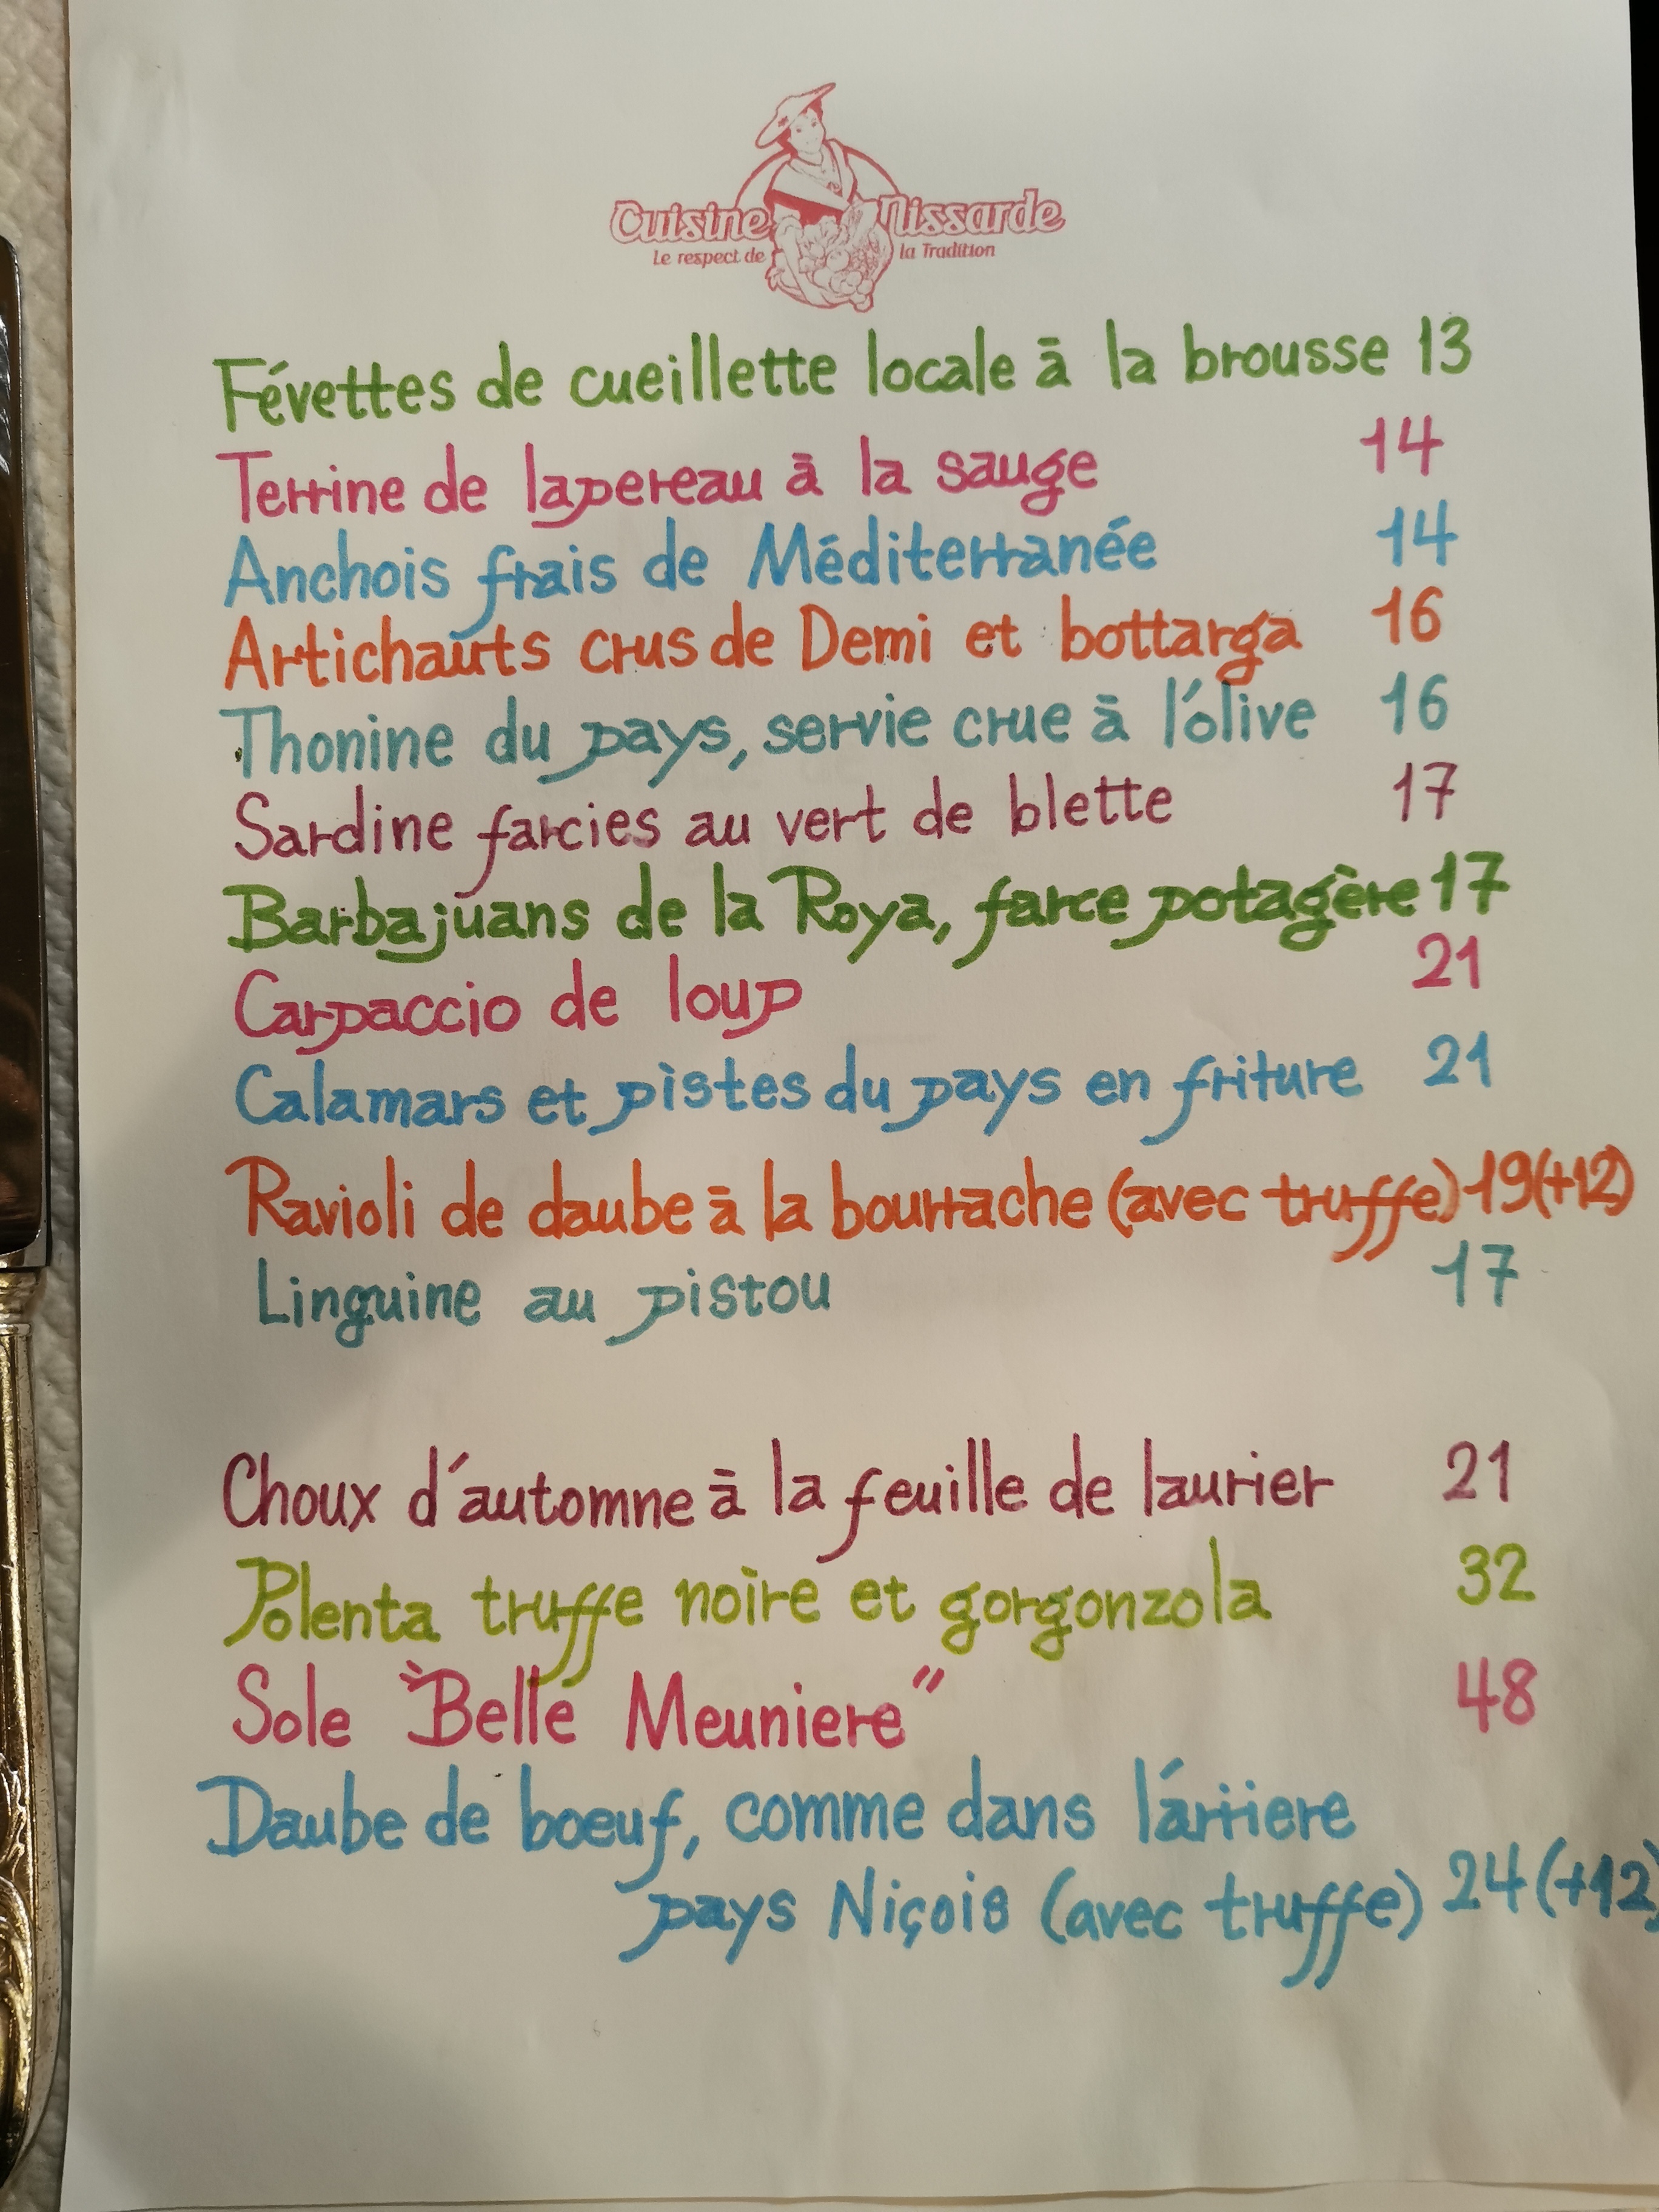 Cuisine Nissarde
Le respect de la Tradition
Févettes de cueillette locale à la brousse 13
Terrine de lapereau à la sauge 14
Anchois frais de Méditerranée 14
Artichauts crus de Demi et bottarga 16
Thonine du pays, servie crue à l'olive 16
Sardine farcies au vert de blette 17
Barbajuans de la Roya, farce potagère 17
Carpaccio de loup 21
Calamars et pistes du pays en friture 21
Ravioli de daube à la bourrache (avec truffe) 19(+12)
Linguine au pistou 17
Choux d'automne à la feuille de laurier 21
Polenta truffe noire et gorgonzola 32
Sole "Belle Meuniere" 48
Daube de boeuf, comme dans l'arriere
pays Niçois (avec truffe) 24 (+12)